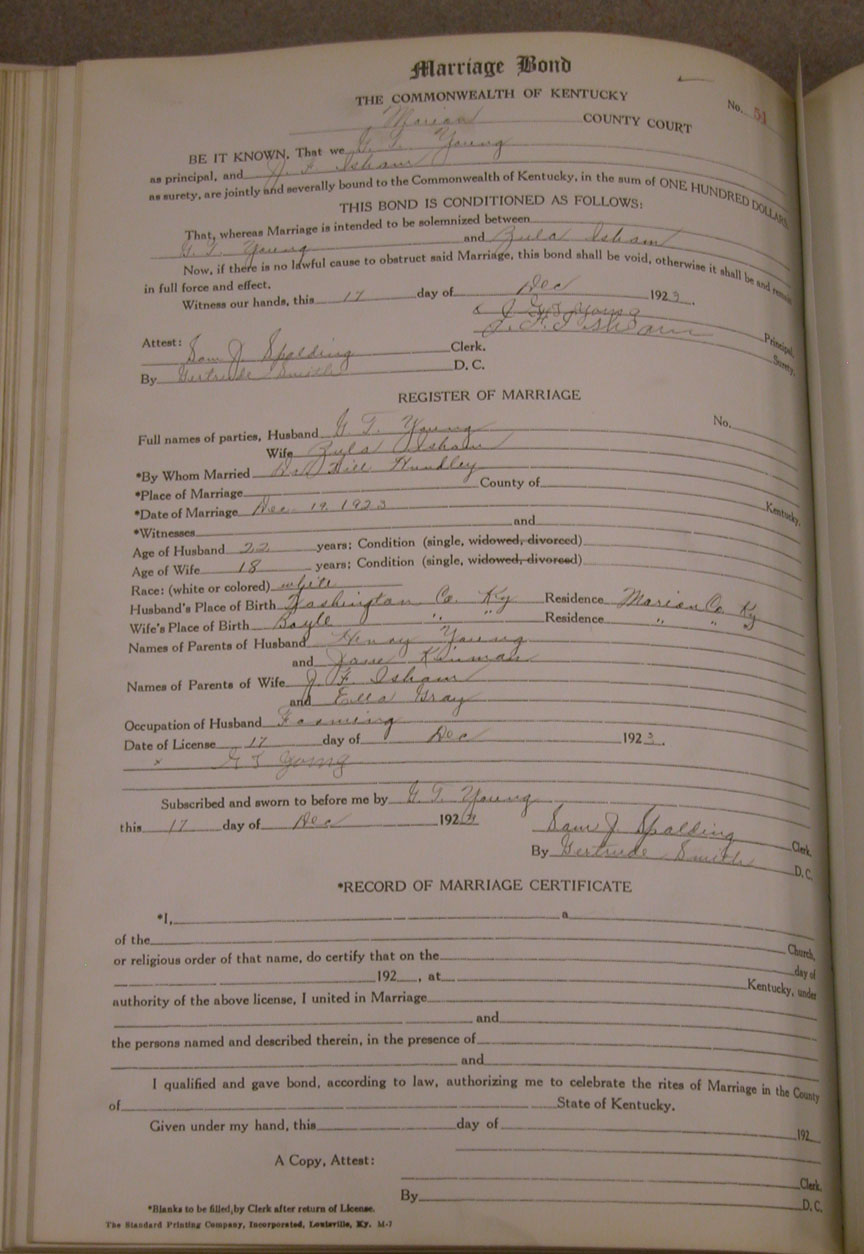 Marriage Bond
THE COMMONWEALTH OF KENTUCKY
No. 51
Marion COUNTY COURT
BE IT KNOWN, That we G. T. Young
as principal, and J. F. Isham
as surety, are jointly and severally bound to the Commonwealth of Kentucky, in the sum of ONE HUNDRED DOLLARS.
THIS BOND IS CONDITIONED AS FOLLOWS:
That, whereas Marriage is intended to be solemnized between
G. T. Young and Zula Isham
Now, if there is no lawful cause to obstruct said Marriage, this bond shall be void, otherwise it shall be and remain
in full force and effect.
Witness our hands, this 17 day of Dec 1923.
x G T Young Principal,
J. F. Isham Surety.
Attest: Sam J. Spalding Clerk.
By Gertrude Smith D. C.
REGISTER OF MARRIAGE
No.
Full names of parties, Husband G. T. Young
Wife Zula Isham
*By Whom Married Hundley
*Place of Marriage County of Kentucky.
*Date of Marriage Dec. 19, 1923
*Witnesses and
Age of Husband 22 years; Condition (single, widowed, divorced)
Age of Wife 18 years; Condition (single, widowed, divorced)
Race: (white or colored) white
Husband's Place of Birth Washington Co. Ky Residence Marion Co. Ky
Wife's Place of Birth Boyle " " Residence " " "
Names of Parents of Husband Henry Young
and Jane Kinman
Names of Parents of Wife J. F. Isham
and Ella Gray
Occupation of Husband Farming
Date of License 17 day of Dec 1923.
x G T Young
Subscribed and sworn to before me by G. T. Young
this 17 day of Dec 1923
Sam J. Spalding Clerk.
By Gertrude Smith D. C.
*RECORD OF MARRIAGE CERTIFICATE
*I, a
of the Church,
or religious order of that name, do certify that on the day of
192 , at Kentucky, under
authority of the above license, I united in Marriage
and
the persons named and described therein, in the presence of
and
I qualified and gave bond, according to law, authorizing me to celebrate the rites of Marriage in the County
of State of Kentucky.
Given under my hand, this day of 192
A Copy, Attest:
Clerk.
By D. C.
*Blanks to be filled by Clerk after return of License.
The Standard Printing Company, Incorporated, Louisville, Ky. M-7